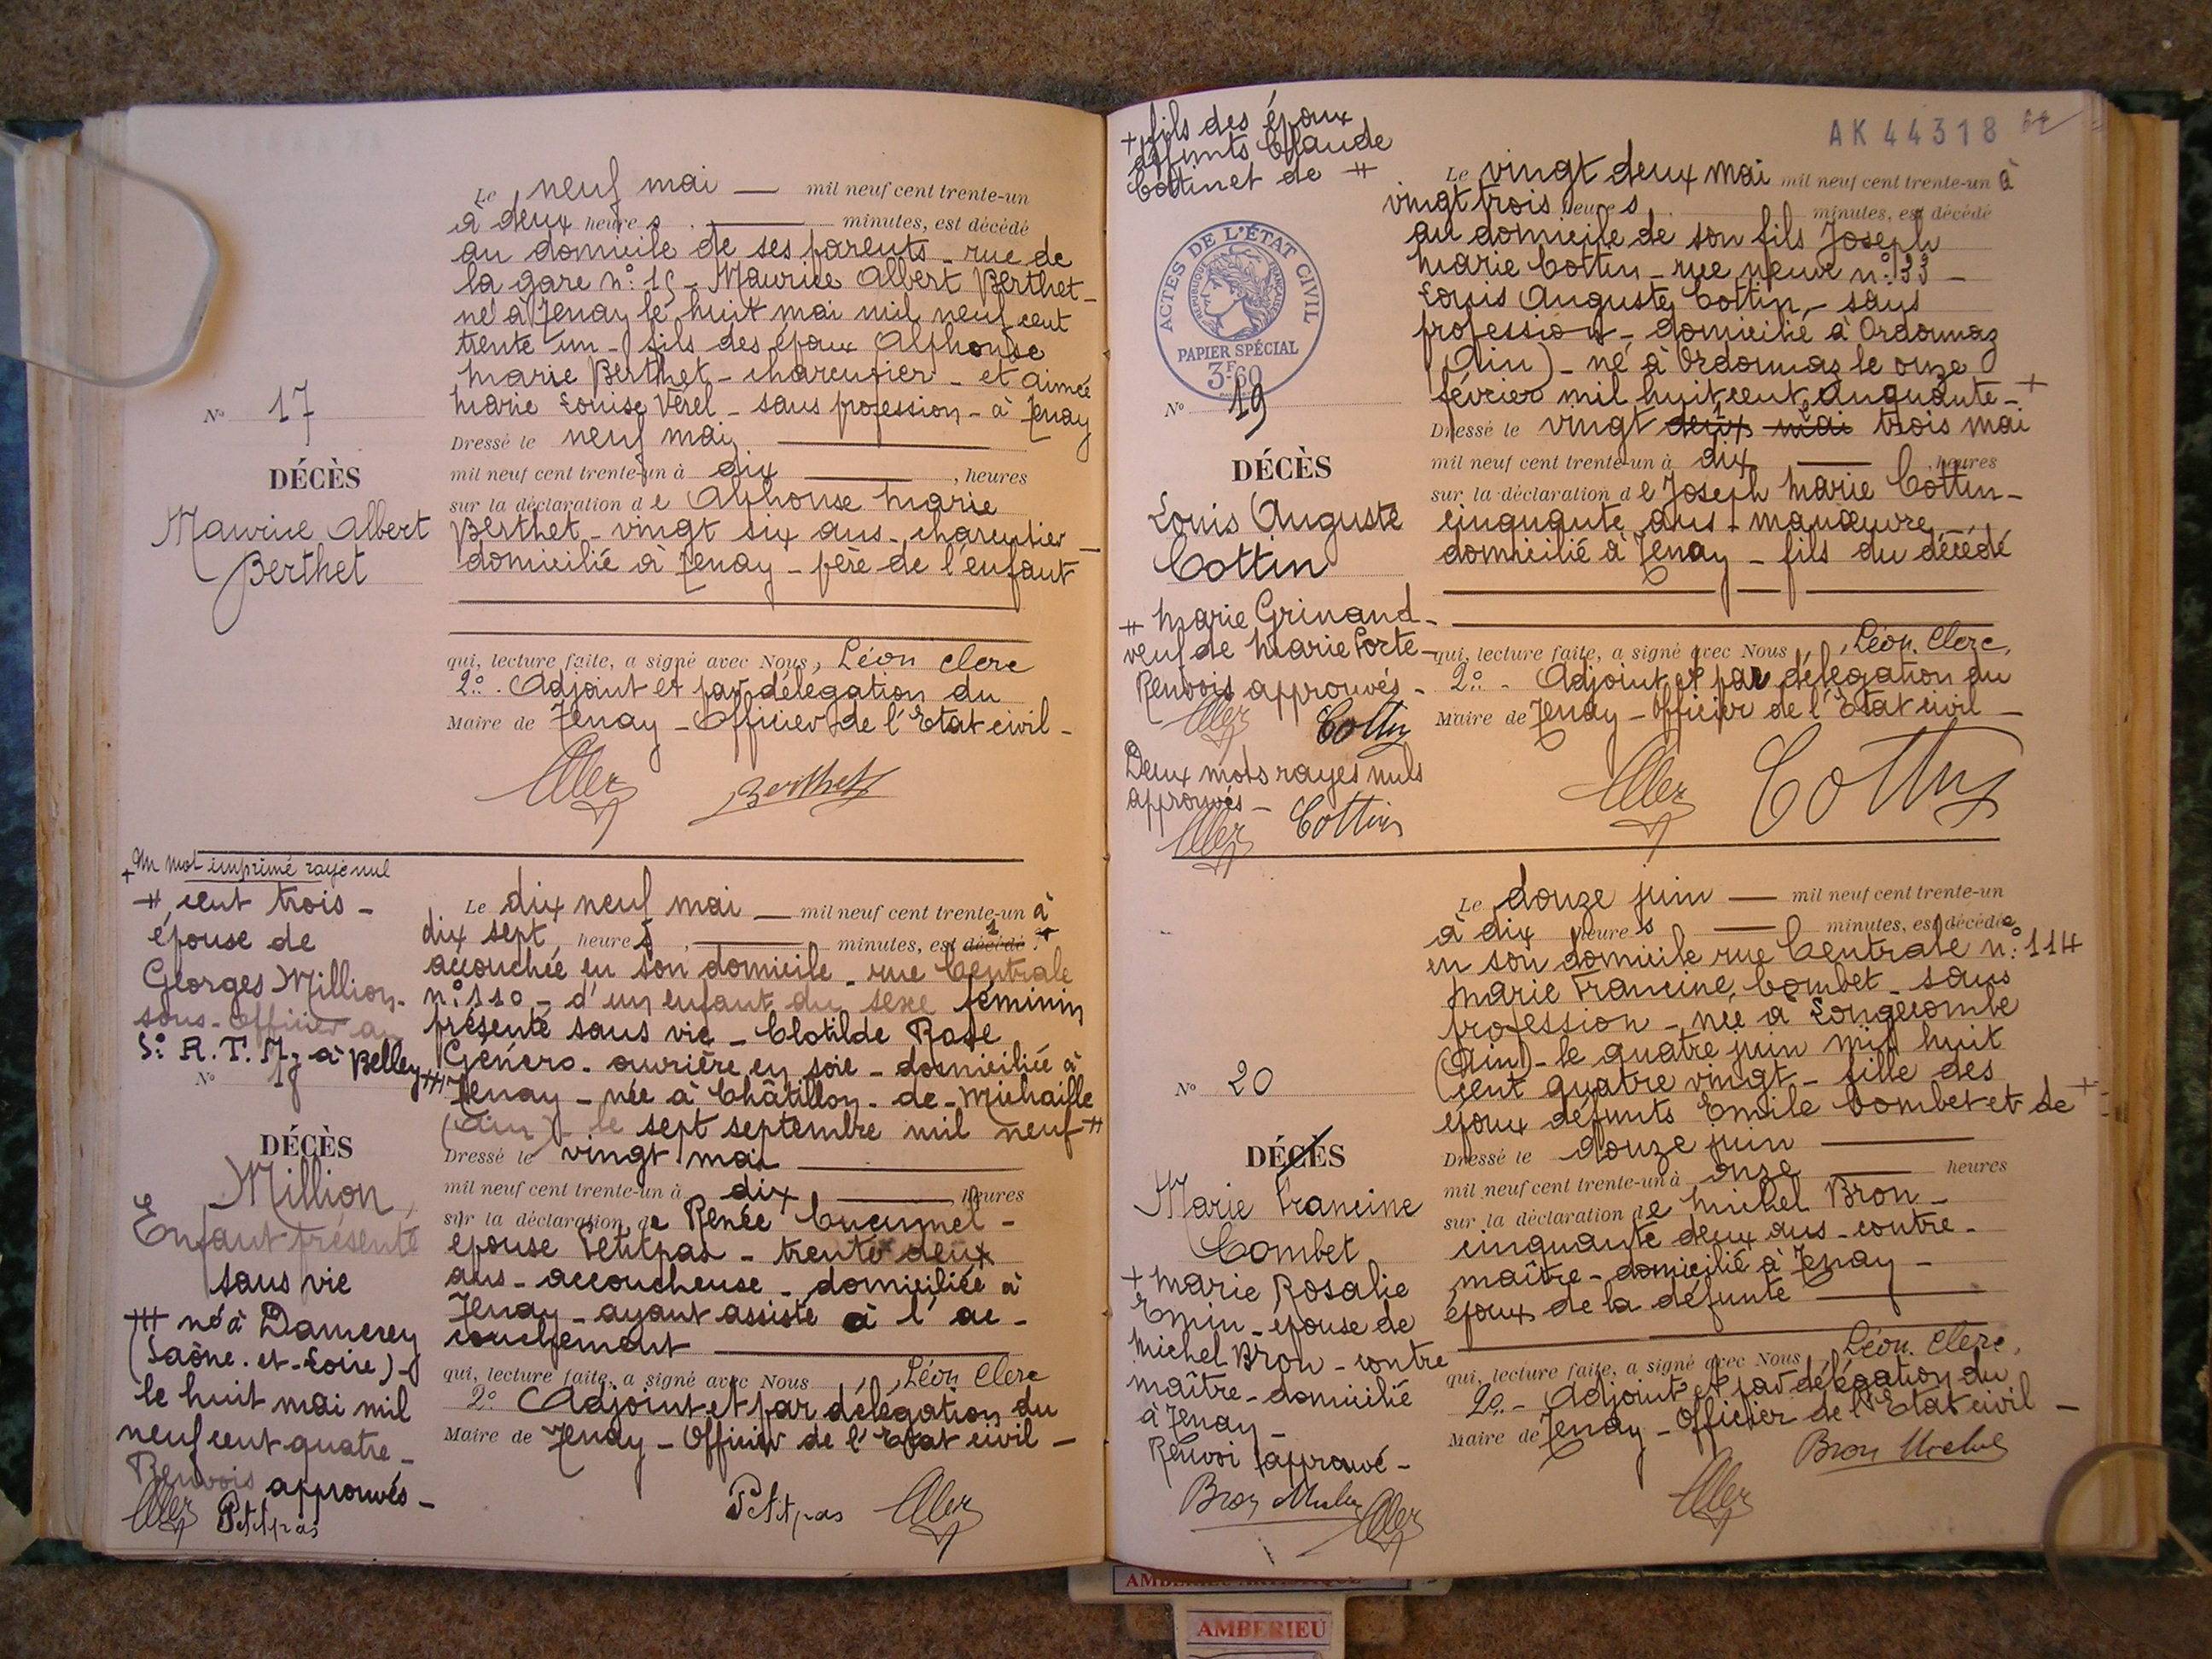 Le neuf mai — mil neuf cent trente-un
à deux heures — minutes, est décédé
au domicile de ses parents - rue de
la gare n° 15 - Maurice Albert Berthet -
né à Tenay le huit mai mil neuf cent
trente un - fils des époux Alphonse
Marie Berthet - charcutier - et Aimée
Marie Louise Vérel - sans profession - à Tenay
N° 17
DÉCÈS
Maurice Albert
Berthet
Dressé le neuf mai
mil neuf cent trente-un à dix , heures
sur la déclaration de Alphonse Marie
Berthet - vingt six ans - charcutier -
domicilié à Tenay - père de l'enfant
qui, lecture faite, a signé avec Nous, Léon Clerc
2° Adjoint et par délégation du
Maire de Tenay - Officier de l'Etat civil -
Berthet
+ Un mot imprimé rayé nul
++ cent trois -
épouse de
Georges Million -
sous-officier au
5° R. T. M. à Belley +++
N° 18
DÉCÈS
Million,
Enfant présenté
sans vie
+++ né à Damerey
(Saône-et-Loire) -
le huit mai mil
neuf cent quatre -
Renvois approuvés -
Petitpas
Le dix neuf mai — mil neuf cent trente-un à
dix sept heures, — minutes, est décédé +
accouchée en son domicile - rue Centrale
n° 110 - d'un enfant du sexe féminin
présenté sans vie - Clotilde Rose
Généro - ouvrière en soie - domiciliée à
Tenay - née à Châtillon-de-Michaille
(Ain) - le sept septembre mil neuf ++
Dressé le vingt mai
mil neuf cent trente-un à dix , heures
sur la déclaration de Renée Cucumel -
épouse Petitpas - trente deux
ans - accoucheuse - domiciliée à
Tenay - ayant assisté à l'ac-
couchement
qui, lecture faite, a signé avec Nous, Léon Clerc
2° Adjoint et par délégation du
Maire de Tenay - Officier de l'Etat civil -
Petitpas
AK 44318
+ fils des époux
défunts Claude
Cottinet de ++
ACTES DE L'ÉTAT CIVIL
RÉPUBLIQUE FRANÇAISE
PAPIER SPÉCIAL
3F60
N° 19
DÉCÈS
Louis Auguste
Cottin
++ Marie Grinand -
veuf de Marie Porte -
Renvois approuvés -
Cottin
Deux mots rayés nuls
approuvés -
Cottin
Le vingt deux mai mil neuf cent trente-un à
vingt trois heures minutes, est décédé
au domicile de son fils Joseph
Marie Cottin - rue neuve n° 33 -
Louis Auguste Cottin - sans
profession - domicilié à Ordonnaz
(Ain) - né à Ordonnaz le onze
février mil huit cent cinquante - +
Dressé le vingt deux mai trois mai
mil neuf cent trente-un à dix , heures
sur la déclaration de Joseph Marie Cottin -
cinquante ans - manœuvre -
domicilié à Tenay - fils du décédé
qui, lecture faite, a signé avec Nous, Léon Clerc,
2° - Adjoint et par délégation du
Maire de Tenay - Officier de l'Etat civil -
Cottin
Le douze juin — mil neuf cent trente-un
à dix heures — minutes, est décédée
en son domicile rue Centrale n° 114
Marie Francine Combet - sans
profession - née à Longecombe
(Ain) - le quatre juin mil huit
cent quatre vingt - fille des
époux défunts Emile Combet et de +
N° 20
DÉCÈS
Marie Francine
Combet
+ Marie Rosalie
Emin - épouse de
Michel Bron - contre
maître - domicilié
à Tenay -
Renvoi approuvé -
Bron Michel
Dressé le douze juin
mil neuf cent trente-un à onze heures
sur la déclaration de Michel Bron -
cinquante deux ans - contre-
maître - domicilié à Tenay -
époux de la défunte
qui, lecture faite, a signé avec Nous, Léon Clerc,
2° - Adjoint et par délégation du
Maire de Tenay - Officier de l'Etat civil -
Bron Michel
AMBERIEU